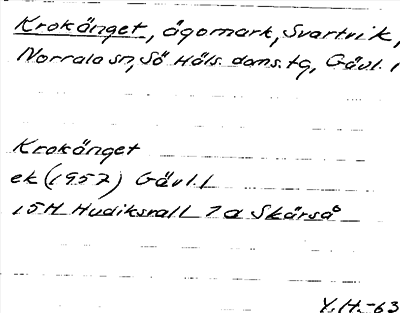 Krokänget, ägomark, Svartvik,
Norrala sn, Sö Häls. doms.tg, Gävl. l
Krokänget
ek (1957) Gävl. l
15H Hudiksvall 7a Skärså
Y.H.-63